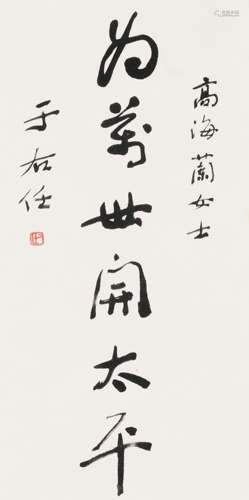 高海蘭女士
為萬世開太平
于右任